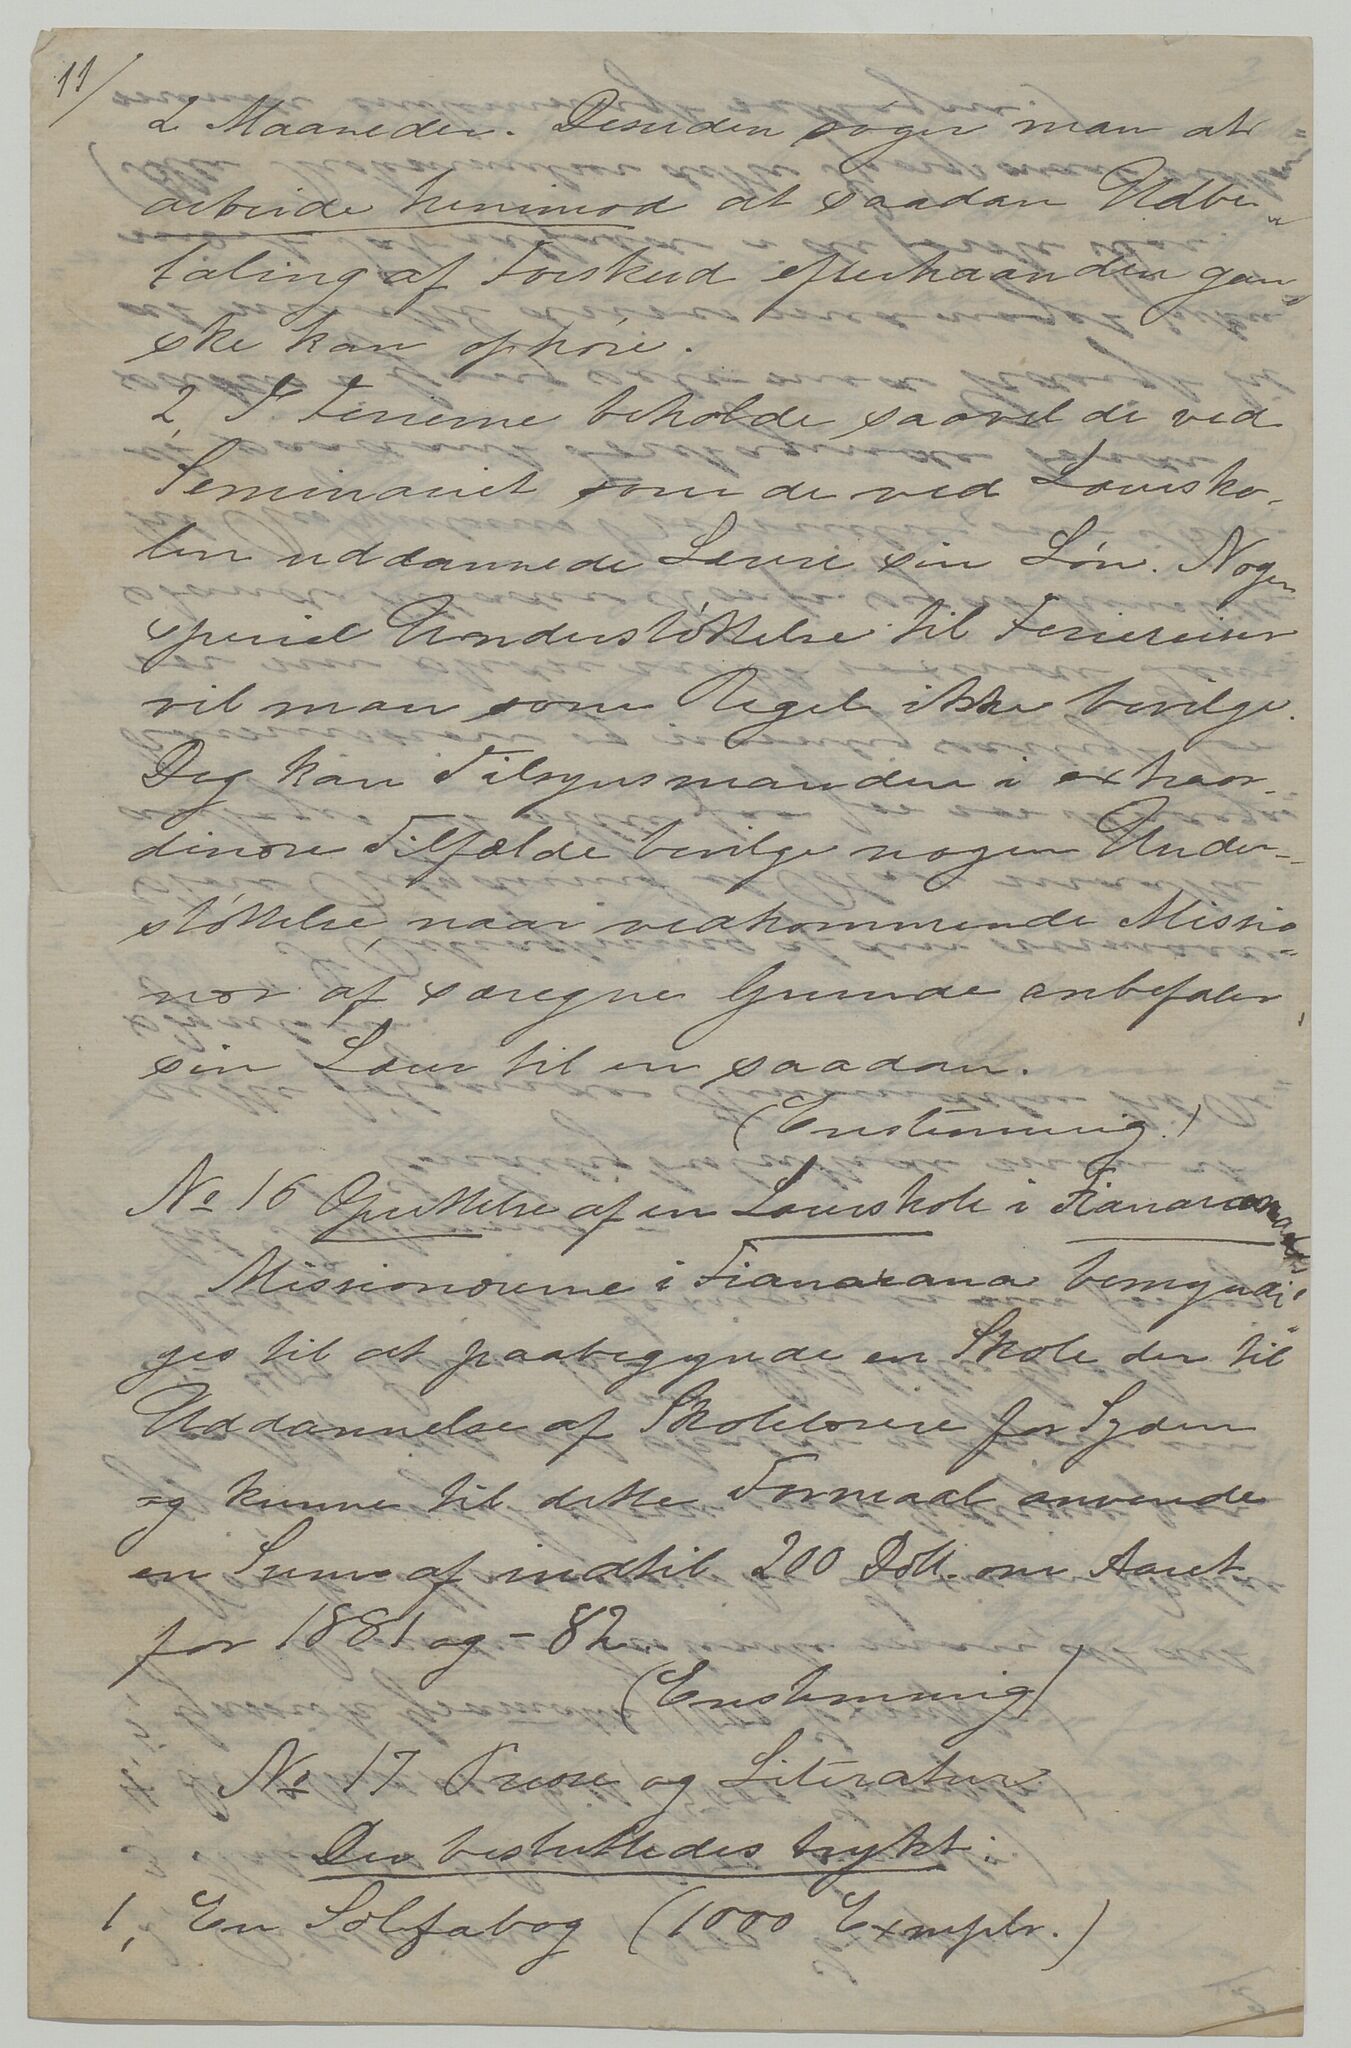 11/
2 Maaneder. Desuden søger man at
arbeide henimod at saadan Udbe-
taling af Forskud efterhaanden gan-
ske kan ophöre.
2, I Ferierne beholde saavel de ved
Seminariet som de ved Lærersko-
len uddannede Lærere sin Lön. Nogen
speciel Understöttelse til Feriereiser
vil man som Regel ikke bevilge.
Dog kan Tilsynsmanden i extraor-
dinære Tilfælde bevilge nogen Under-
stöttelse naar vedkommende Missio-
nær af særegne Grunde anbefaler
sin Lærer til en saadan.
(Enstemmig.)
No 16 Oprettelse af en Lærerskole i
Missionærerne i Fianarana bemyndi-
ges til at paabegynde en Skole der til
Uddannelse af Skolelærere for Syden
og kunne til dette Formaal anvende
en Sum af indtil 200 Doll. om Aaret
for 1881 og - 82
(Enstemmig)
No 17 Presse og Literatur.
Der besluttedes trykt:
1, En Solfabog (1000 Exmplr.)